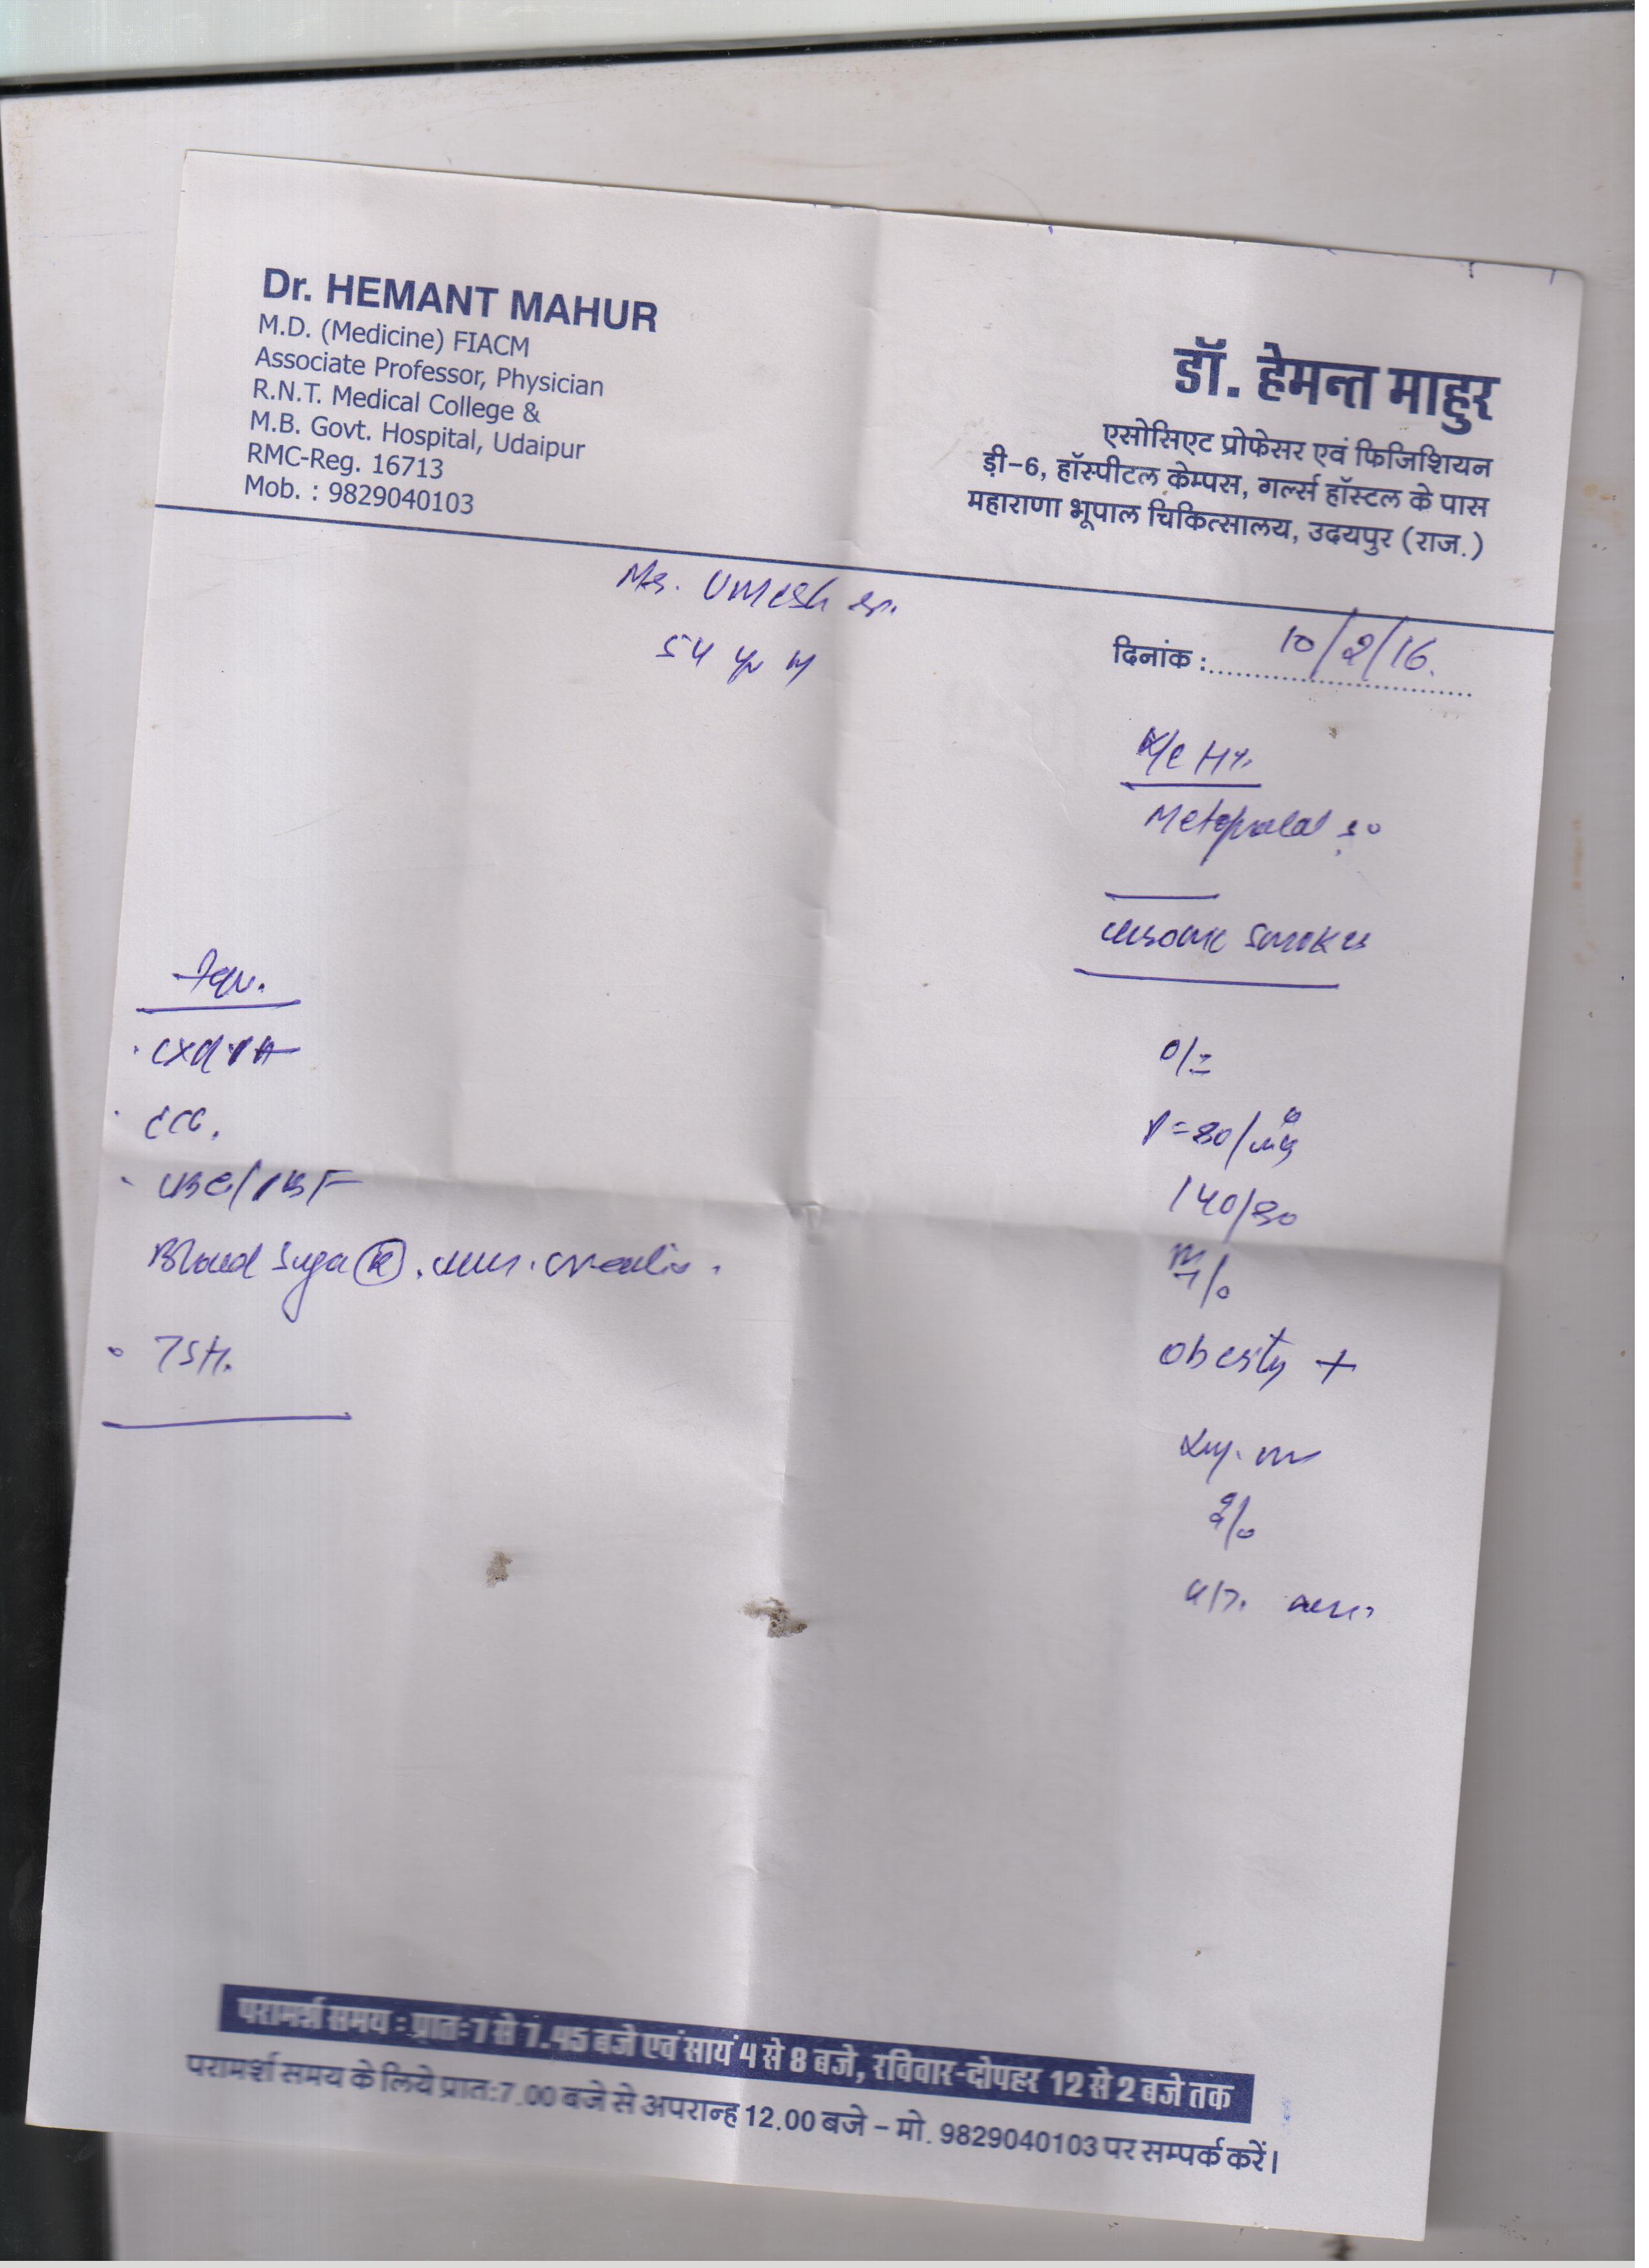 Dr. HEMANT MAHUR
M.D. (Medicine) FIACM
Associate Professor, Physician
R.N.T. Medical College &
M.B. Govt. Hospital, Udaipur
RMC-Reg. 16713
Mob. : 9829040103
डॉ. हेमन्त माहुर
एसोसिएट प्रोफेसर एवं फिजिशियन
डी-6, हॉस्पीटल केम्पस, गर्ल्स हॉस्टल के पास
महाराणा भूपाल चिकित्सालय, उदयपुर (राज.)
Mr. Umesh
54 yr M
दिनांक : 10/2/16.
K/C HT.
Metoprolol 50
Chronic Smoker
O/E
P = 80/
140/80
Obesity +
CXR PA
ECG.
CBC/PBF
Blood Sugar (R)
TSH.
परामर्श समय : प्रातः 7 से 7.45 बजे एवं सायं 4 से 8 बजे, रविवार-दोपहर 12 से 2 बजे तक
परामर्श समय के लिये प्रातः 7.00 बजे से अपरान्ह 12.00 बजे - मो. 9829040103 पर सम्पर्क करें।